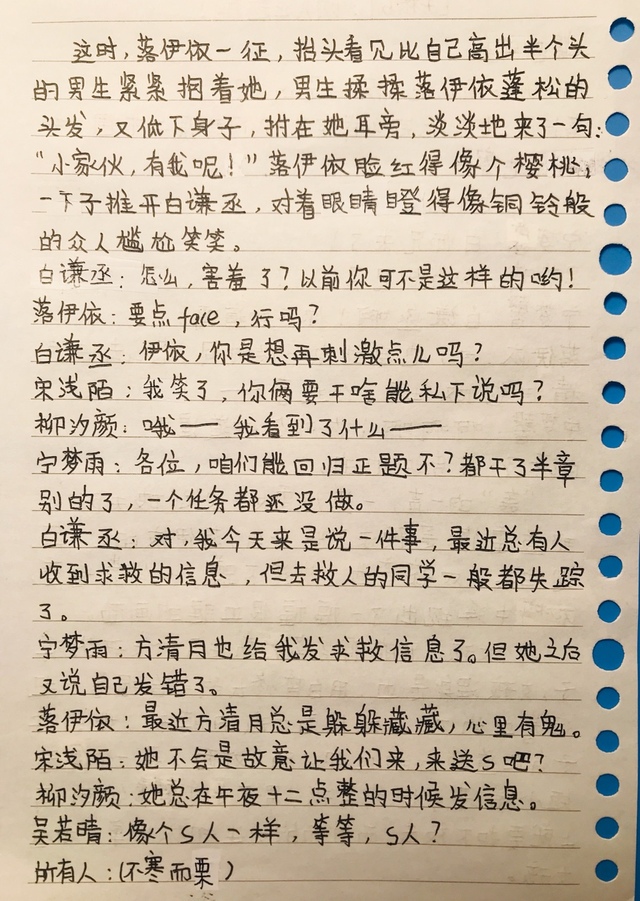 这时，落伊依一征，抬头看见比自己高出半个头
的男生紧紧抱着她，男生揉揉落伊依蓬松的
头发，又低下身子，附在她耳旁，淡淡地来了一句：
“小家伙，有我呢！”落伊依脸红得像个樱桃，
一下子推开白谦丞，对着眼睛瞪得像铜铃般
的众人尴尬笑笑。
白谦丞：怎么，害羞了？以前你可不是这样的哟！
落伊依：要点face，行吗？
白谦丞：伊依，你是想再刺激点儿吗？
宋浅陌：我笑了，你俩要干啥能私下说吗？
柳汐颜：哦——我看到了什么——
宁梦雨：各位，咱们能回归正题不？都干了半章
别的了，一个任务都还没做。
白谦丞：对，我今天来是说一件事，最近总有人
收到求救的信息，但去救人的同学一般都失踪
了。
宁梦雨：方清月也给我发求救信息了。但她之后
又说自己发错了。
落伊依：最近方清月总是躲躲藏藏，心里有鬼。
宋浅陌：她不会是故意让我们来，来送s吧？
柳汐颜：她总在午夜十二点整的时候发信息。
吴若晴：像个s人一样，等等，s人？
所有人：（不寒而栗）